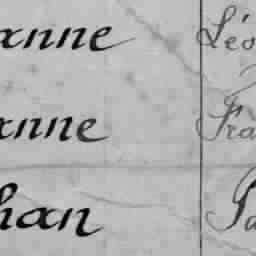 anne Léo
anne Fra
han Pa